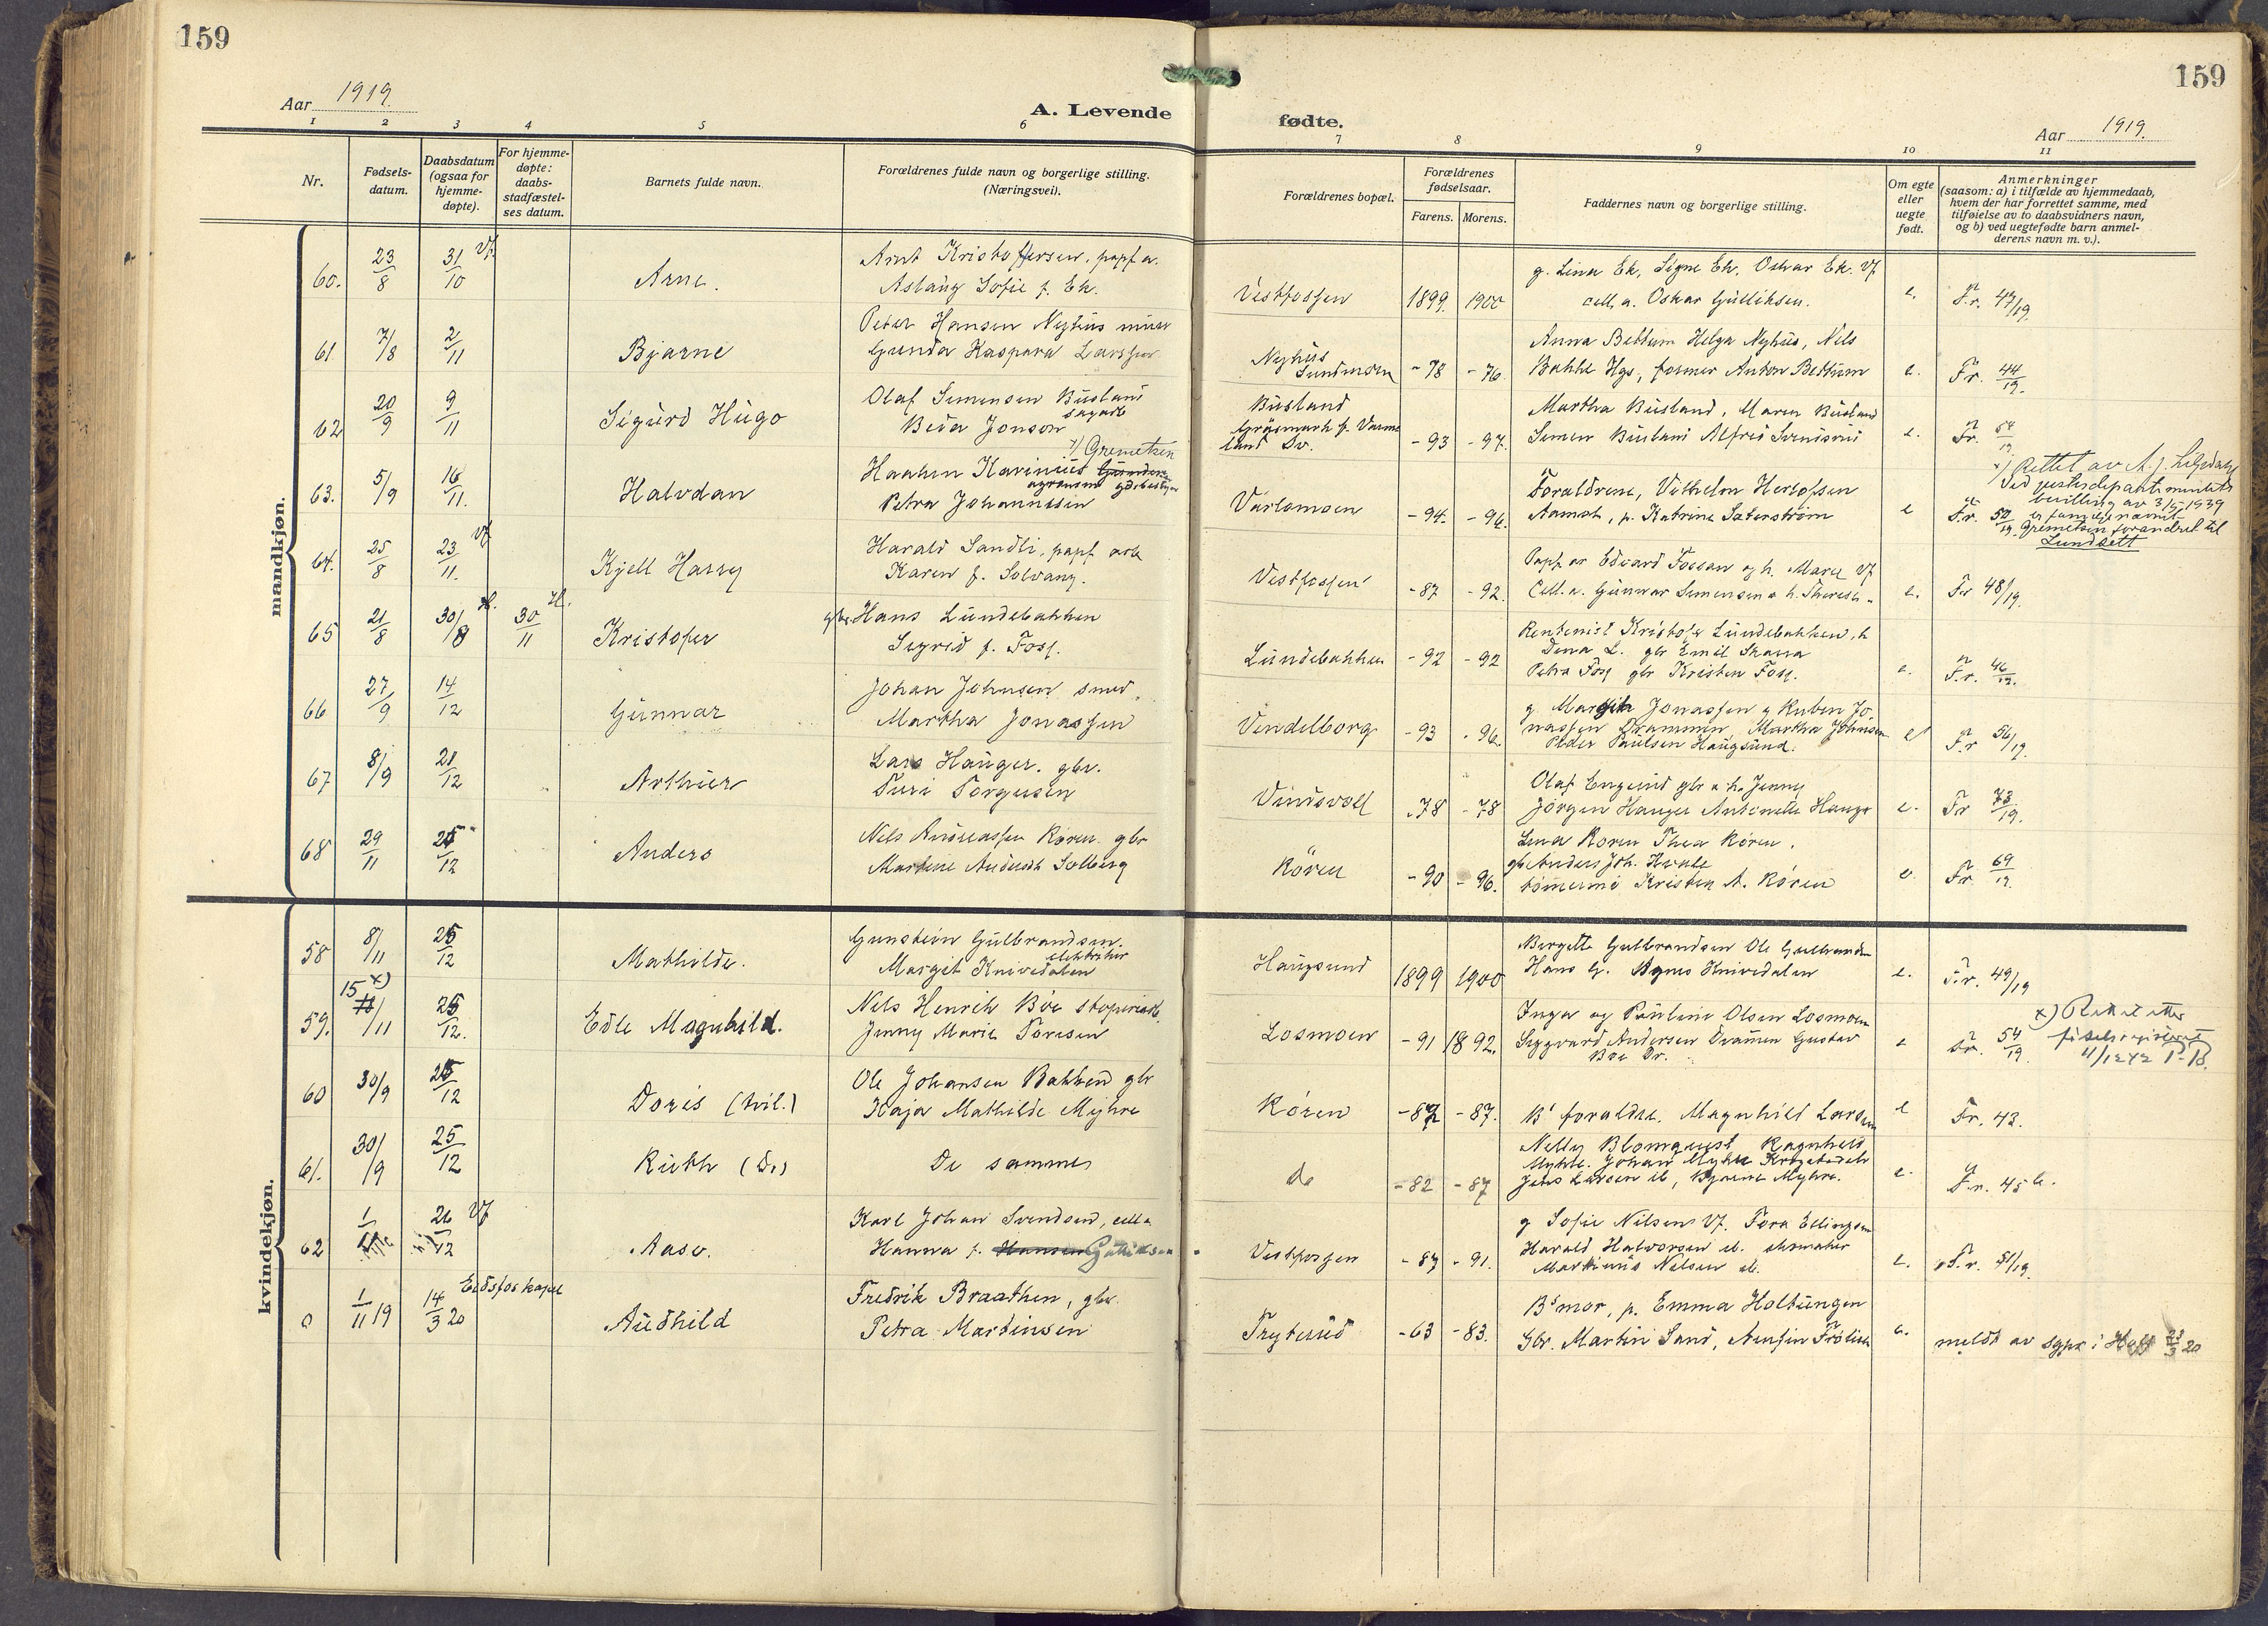 159
159
Aar 1919.
A. Levende
fødte.
Aar 1919.
1 2 3 4 5 6 7 8 9 10 11
Nr.
Fødselsdatum.
Daabsdatum (ogsaa for hjemmedøpte).
For hjemmedøpte: daabsstadfæstelses datum.
Barnets fulde navn.
Forældrenes fulde navn og borgerlige stilling.
(Næringsvei).
Forældrenes bopæl.
Forældrenes fødselsaar.
Farens. Morens.
Faddernes navn og borgerlige stilling.
Om egte eller uegte født.
Anmerkninger
(saasom: a) i tilfælde av hjemmedaab,
hvem der har forrettet samme, med
tilføielse av to daabsvidners navn,
og b) ved uegtefødte barn anmelderens navn m. v.).
mandkjøn.
60. 23/8 31/10 Vf. Arne. Arnt Kristoffersen, papf a.
Aslaug Sofie f. Ek. Vestfossen 1899. 1900 g. Lina Ek, Signe Ek, Oskar Ek. Vf
cell. a. Oskar Gulliksen. e. Fr. 47/19.
61 7/8 2/11 Bjarne Peter Hansen Nyhus
Gunda Kaspara Larssen Nyhus
Sundmoen -78 -76. Anna Bettum Helga Nyhus, Nils
Bakke Hgs, former Anton Bettum e. Fr. 44/19.
62 20/9 9/11 Sigurd Hugo Olaf Simensen Busland
sagarb
Beda Jonson Busland
Gräsmark p. Värmland Sv. -93 -97. Martha Busland, Maren Busland
Simen Busland Alfred e. Fr. 54/19
63. 5/9 16/11. Halvdan x) Gremetsen
Haaken Karinius
agronom gdsbestyrer
Petra Johannessen Varlomoen -94. -96. Forældrene, Vilhelm Herlofsen
Aamot, p. Katrine Säterström e Fr. 50/19
x) Rettet av A. J. Liljedahl
Ved justisdepartementets
bevilling av 3/5 1939
er familienavnet
Gremetsen forandret til
Lundsett
64. 25/8 23/11. Vf Kjell Harry Harald Sandli, papf arb
Karen f. Solvang. Vestfossen -87 -92. Papf ar Edvard Fossan og h. Marie Vf
Cell. a. Gunnar Simensen o h. Therese e. Fr 48/19.
65 21/8 30/8 H. 30/11 H. Kristofer gbr. Hans Lundebakken
Sigrid f. Foss. Lundebakken -92 -92 Rentenist Kristofer Lundebakken, h
Dina L. gbr Emil Skarra
Petra Foss gbr Kristen Foss. e. Fr. 46/19.
66 27/9 14/12 Gunnar Johan Johnsen smed.
Martha Jonassen Vendelborg -93 -96. g Margit Jonassen g Ruben Jonassen Drammen, Martha Johnsen
Peder Paulsen Haugsund. e Fr 56/19.
67 8/9 21/12 Arthur Lars Hauger. gbr.
Turi Torgusen Vindsvoll -78 -78 Olaf Englund gbr o h. Jenny
Jörgen Hauger Antonette Hauger e. Fr 73/19.
68 29/11 25/12 Anders Nils Andreassen Kören. gbr
Marthine Solberg Kören -90 -96. Lina Koren Thea Kören.
gb Anders Joh. Kvale
tömmermd Kristen A. Kören e. Fr. 69/19.
kvindekjøn.
58 8/11 25/12 Mathilde. Gunstein Gulbrandsen.
elektriker
Margit Knivedalen Haugsund 1899 1900 Birgitte Gulbrandsen Ole Gulbrandsen
Hans G. Agnes Knivedalen e. Fr. 49/19
59. 15 x)/11 25/12. Edle Magnhild. Nils Henrik Bøe støperiarb.
Jenny Marie Toresen Losmoen -91 1892. Inga og Pauline Olsen Losmoen
Sigvard Andersen Dramen Gustav
Bøe Dr. e Fr. 54/19. x) Rettet etter
fødselsregisteret
11/12 42
60 30/9 25/12 Doris (tvil.) Ole Johansen Bakken gbr
Kaja Mathilde Myhre Kören -82 -87. Bs forældre. Magnhild Larsen e Fr. 43.
61. 30/9 25/12 Ruth (Do) De samme do -82 -87 Nelly Blomquist Ragnhild
Myhre. Johan Myhre Krogstadelv
Jens Larsen ib, Bjarne Myhre. e. Fr. 45 b.
62 1/ 26/12 Vf Aase. Karl Johan Svendsen, cell a
Hanna f. Hansen Gulliksen Vestfossen -87 -91. g Sofie Nilsen Vf. Tora Ellingsen
Harald Halvorsen ib. skomaker
Markinus Nilsen ib. e. Fr. 51/19.
0 1/11 19 14/3 20 Eidsfos kapel Audhild Fredrik Braathen, gbr.
Petra Martinsen Tryterud -63 -83. Bs mor, p. Emma Holtungen
Gbr. Martin Sand, e. meldt av sgpr i Hof 23/3 20